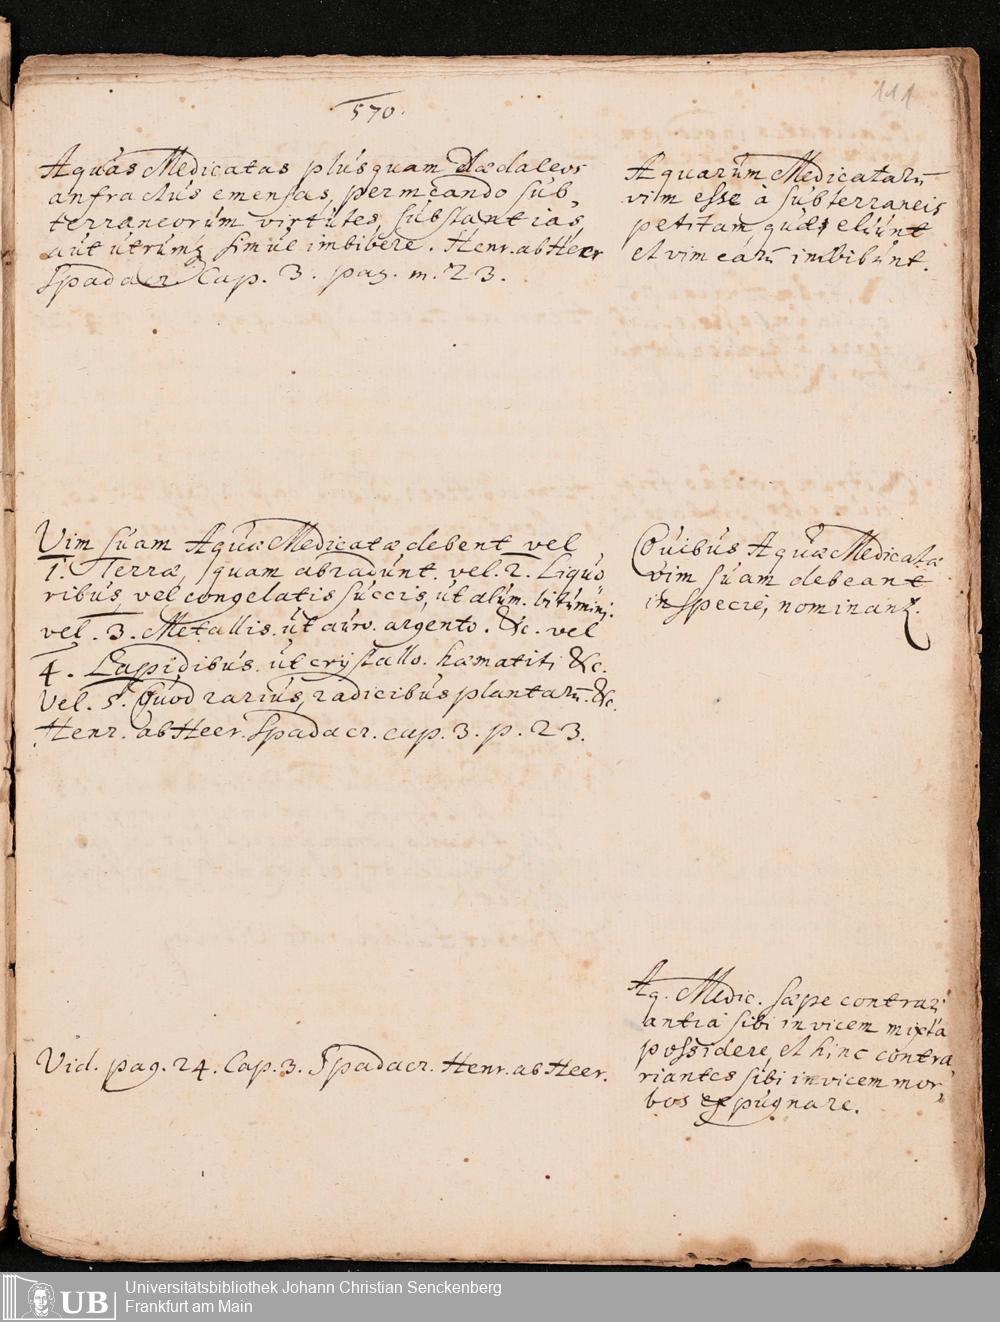 111
570.
Aquas Medicatas plusquam Dædaleos
anfractus emensas, permeando sub,
terraneorum virtutes, substantias
aut utrumq simul imbibere. Henr. ab Heer
Spadacr. Cap. 3. pag. m. 23.
Aquarum Medicatarū
vim esse à subterraneis
petitam, quæ eluunt
et vim earū imbibunt.
Vim suam Aquæ Medicatæ debent vel
1. Terræ, quam abradunt. vel. 2. Liquo
ribus, vel congelatis succis, ut alum. bitumin:
vel. 3. Metallis. ut auro. argento. &c. vel
4. Lapidibus. ut crystallo. hæmatiti &c.
Vel. 5. Quod rarius, radicibus plantarū. &c.
Henr. ab Heer. Spadacr. cap. 3. p. 23.
Quibus Aquæ Medicatæ
vim suam debeant
in specie, nominant.
Vid. pag. 24. Cap. 3. Spadacr. Henr. ab Heer.
Aq. Medic. sæpe contrari
antia sibi invicem mixta
possidere, et hinc contra,
riantes sibi invicem mor,
bos expugnare.
UB
Universitätsbibliothek Johann Christian Senckenberg
Frankfurt am Main